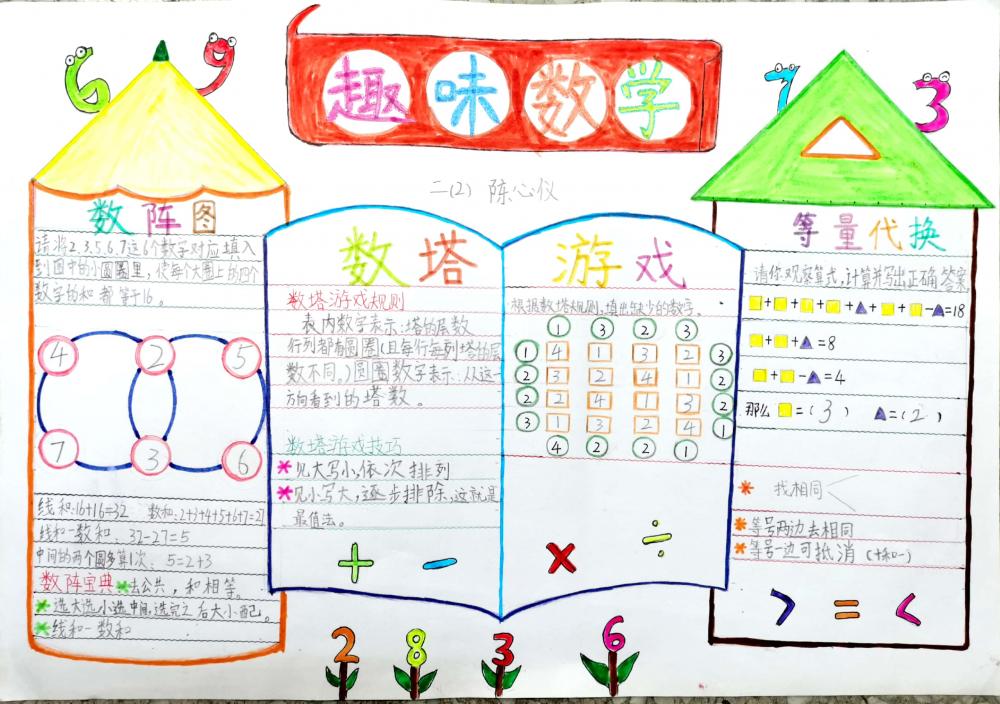 6 9
趣味数学
7 3
二(2) 陈心仪
数阵图
请将2,3,5,6,7这6个数字对应填入
到图中的小圆圈里,使每个大圈上的四个
数字的和都等于16。
4 2 5
7 3 6
线和:16+16=32 数和:2+3+4+5+6+7=27
线和-数和:32-27=5
中间的两个圆多算1次 5=2+3
数阵宝典 *去公共,和相等。
*选大选小选中间,选完之后大小配。
*线和-数和
数塔
数塔游戏规则
表内数字表示:塔的层数
行列都有圆圈(且每行每列塔的层
数不同。)圆圈数字表示:从这一
方向看到的塔数。
数塔游戏技巧
*见大写小,依次排列
*见小写大,逐步排除,这就是
最值法。
+ -
游戏
根据数塔规则,填出缺少的数字。
1 3 2 3
1 4 1 3 2 3
2 3 2 4 1 2
2 2 4 1 3 2
3 1 3 2 4 1
4 2 2 1
× ÷
等量代换
请你观察算式,计算并写出正确答案
■+■+■+■+▲+■+■-▲=18
■+■+▲=8
■+■-▲=4
那么■=(3) ▲=(2)
* 找相同
*等号两边去相同
*等号一边可抵消(+和-)
> = <
2 8 3 6